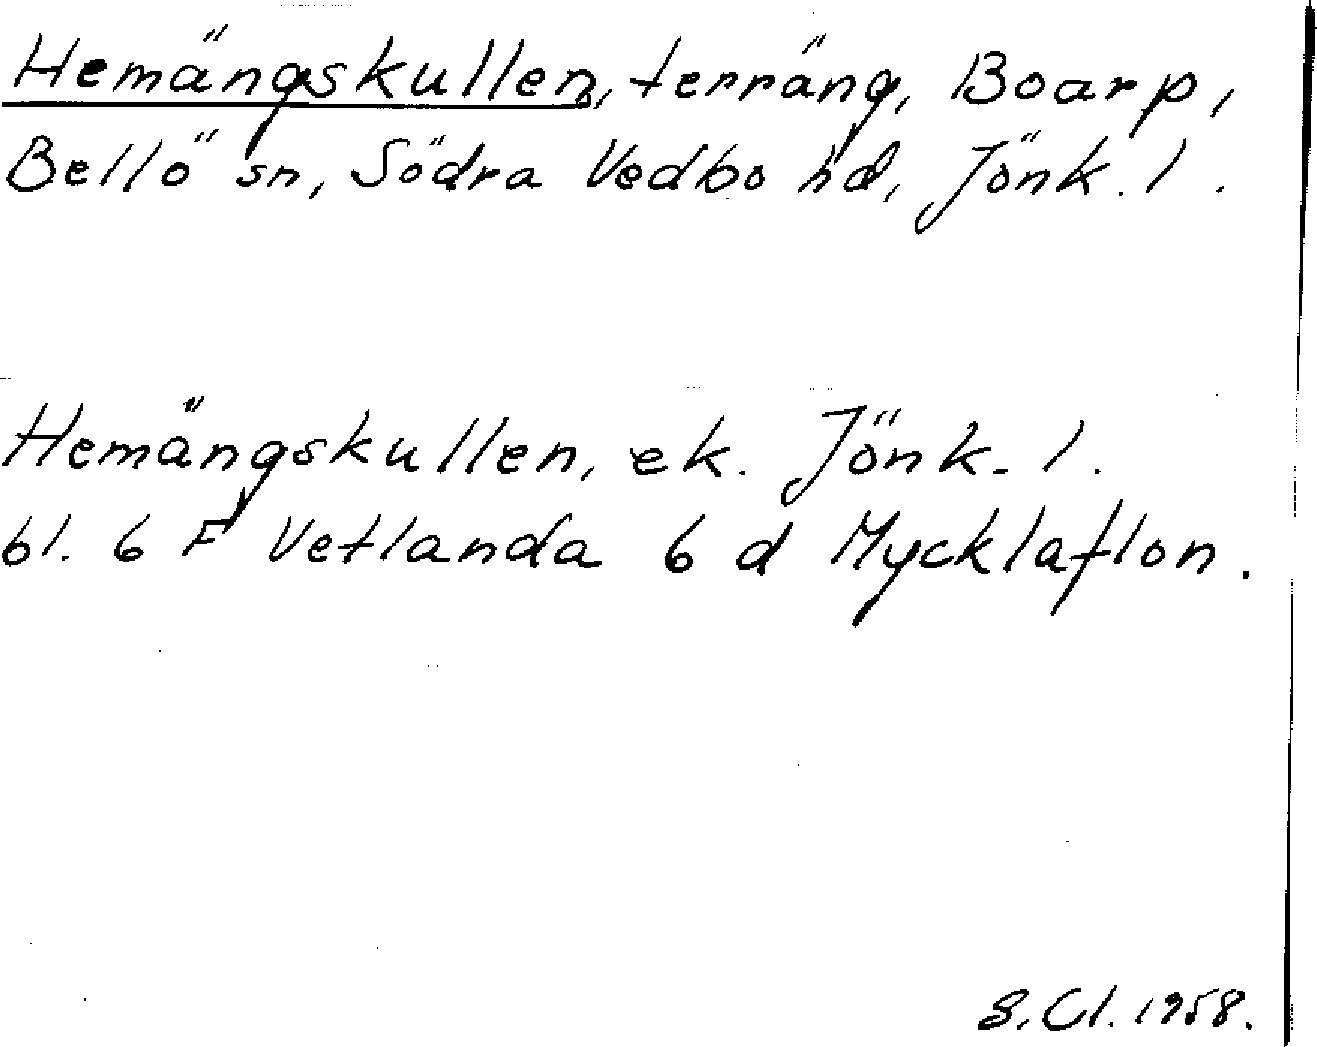 Hemängskullen, terräng, Boarp,
Bellö sn, Södra Vedbo hd, Jönk. l.
Hemängskullen, ek. Jönk. l.
bl. 6 F Vetlanda 6 d Mycklaflon.
S. Cl. 1958.